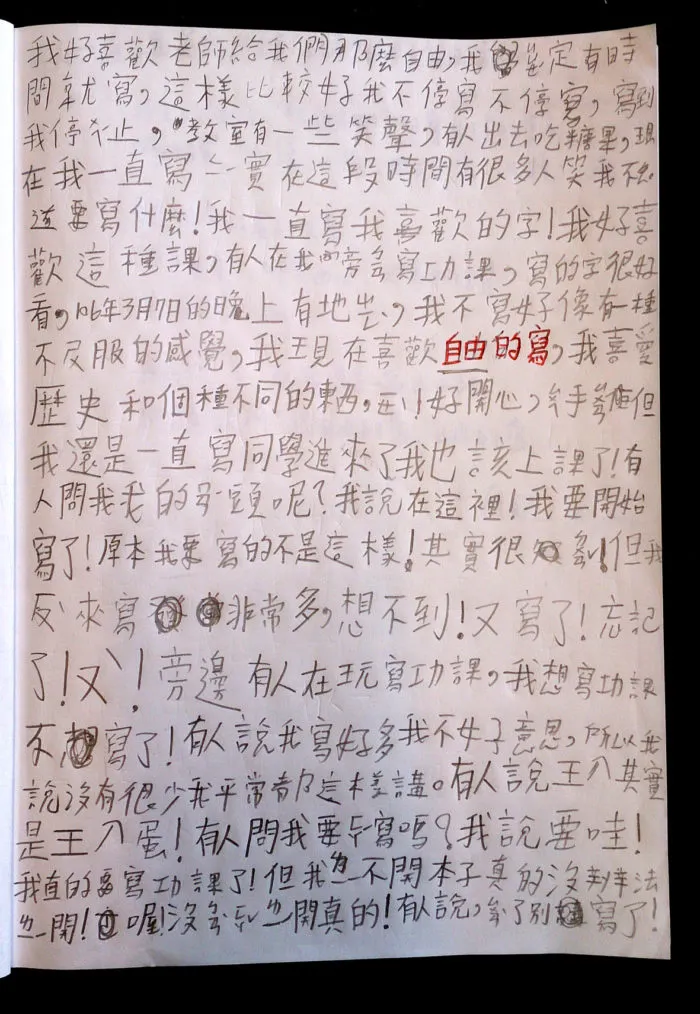 我好喜歡老師給我們那麼自由,我定有時
間就寫,這樣比較好我不停寫不停寫,寫到
我停不止,教室有一些笑聲,有人出去吃糖果,現
在我一直寫 實在這段時間有很多人笑我不
道要寫什麼!我一直寫我喜歡的字!我好喜
歡這種課,有人在我的旁寫功課,寫的字很好
看,106年3月7日的晚上有地,我不寫好像有一種
不反服的感覺,我現在喜歡自由的寫,我喜愛
歷史和個種不同的東西,好開心,手但
我還是一直寫同學進來了我也該上課了!有
人問我我的頭呢?我說在這裡!我要開始
寫了!原本我要寫的不是這樣!其實很!但我
反來寫非常多,想不到!又寫了!忘記
了!又!旁邊有人在玩寫功課,我想寫功課
不寫了!有人說我寫好多我不好意思,所以我
說沒有很少我平常都這樣講。有人說王八其實
是王八蛋!有人問我要寫嗎?我說要哇!
我直的要寫功課了!但我ㄉ一不開本子真的沒辦法
ㄉ一開!喔!沒ㄉ一開真的!有人說,了別寫了!